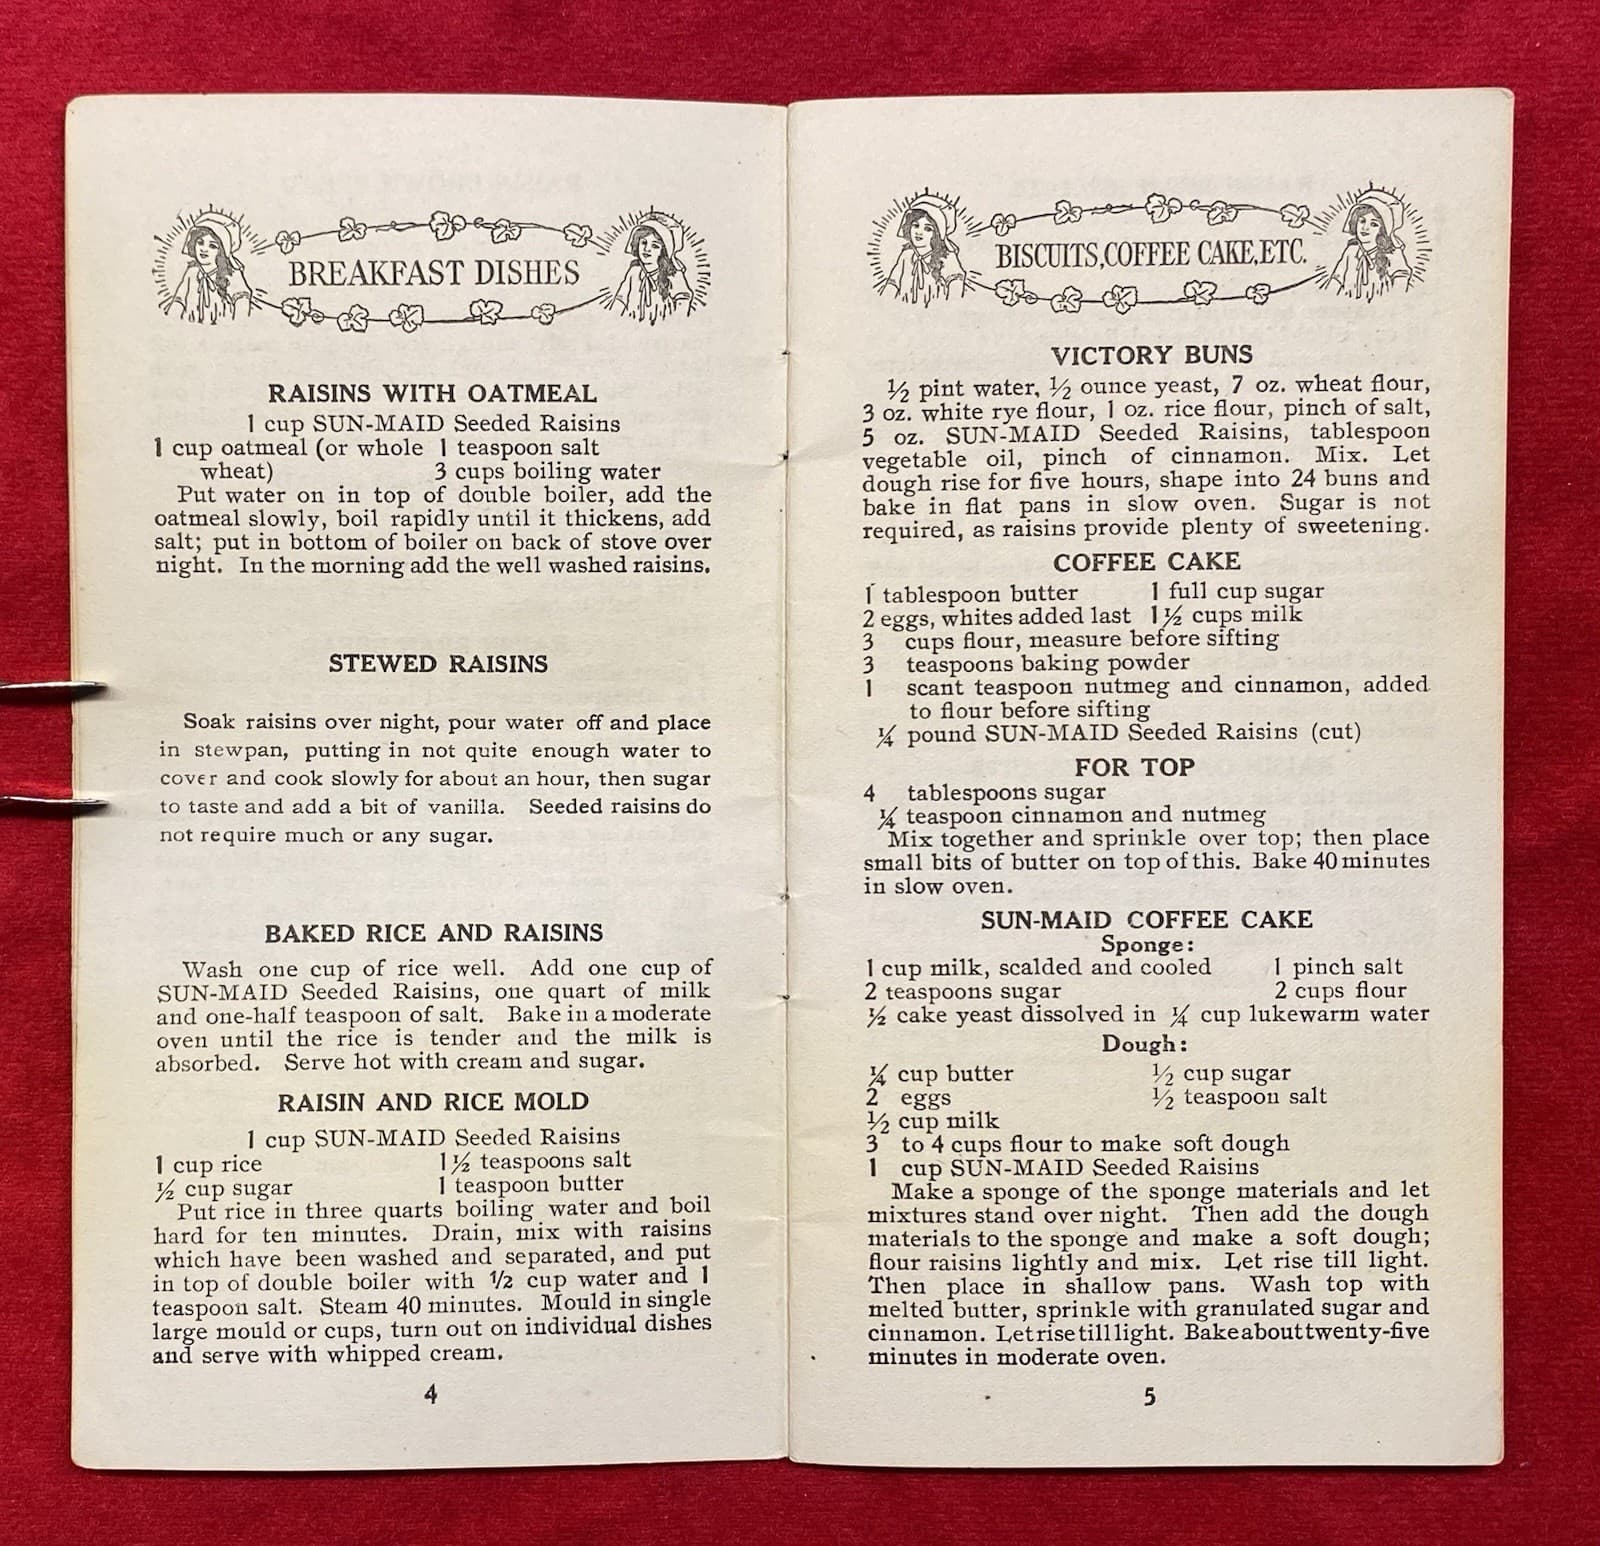 BREAKFAST DISHES
RAISINS WITH OATMEAL
1 cup SUN-MAID Seeded Raisins
1 cup oatmeal (or whole 1 teaspoon salt
wheat) 3 cups boiling water
Put water on in top of double boiler, add the
oatmeal slowly, boil rapidly until it thickens, add
salt; put in bottom of boiler on back of stove over
night. In the morning add the well washed raisins.
STEWED RAISINS
Soak raisins over night, pour water off and place
in stewpan, putting in not quite enough water to
cover and cook slowly for about an hour, then sugar
to taste and add a bit of vanilla. Seeded raisins do
not require much or any sugar.
BAKED RICE AND RAISINS
Wash one cup of rice well. Add one cup of
SUN-MAID Seeded Raisins, one quart of milk
and one-half teaspoon of salt. Bake in a moderate
oven until the rice is tender and the milk is
absorbed. Serve hot with cream and sugar.
RAISIN AND RICE MOLD
1 cup SUN-MAID Seeded Raisins
1 cup rice 1½ teaspoons salt
½ cup sugar 1 teaspoon butter
Put rice in three quarts boiling water and boil
hard for ten minutes. Drain, mix with raisins
which have been washed and separated, and put
in top of double boiler with 1/2 cup water and 1
teaspoon salt. Steam 40 minutes. Mould in single
large mould or cups, turn out on individual dishes
and serve with whipped cream.
4
BISCUITS, COFFEE CAKE, ETC.
VICTORY BUNS
½ pint water, ½ ounce yeast, 7 oz. wheat flour,
3 oz. white rye flour, 1 oz. rice flour, pinch of salt,
5 oz. SUN-MAID Seeded Raisins, tablespoon
vegetable oil, pinch of cinnamon. Mix. Let
dough rise for five hours, shape into 24 buns and
bake in flat pans in slow oven. Sugar is not
required, as raisins provide plenty of sweetening.
COFFEE CAKE
1 tablespoon butter 1 full cup sugar
2 eggs, whites added last 1½ cups milk
3 cups flour, measure before sifting
3 teaspoons baking powder
1 scant teaspoon nutmeg and cinnamon, added
to flour before sifting
¼ pound SUN-MAID Seeded Raisins (cut)
FOR TOP
4 tablespoons sugar
¼ teaspoon cinnamon and nutmeg
Mix together and sprinkle over top; then place
small bits of butter on top of this. Bake 40 minutes
in slow oven.
SUN-MAID COFFEE CAKE
Sponge:
1 cup milk, scalded and cooled 1 pinch salt
2 teaspoons sugar 2 cups flour
½ cake yeast dissolved in ¼ cup lukewarm water
Dough:
¼ cup butter ½ cup sugar
2 eggs ½ teaspoon salt
½ cup milk
3 to 4 cups flour to make soft dough
1 cup SUN-MAID Seeded Raisins
Make a sponge of the sponge materials and let
mixtures stand over night. Then add the dough
materials to the sponge and make a soft dough;
flour raisins lightly and mix. Let rise till light.
Then place in shallow pans. Wash top with
melted butter, sprinkle with granulated sugar and
cinnamon. Let rise till light. Bake about twenty-five
minutes in moderate oven.
5